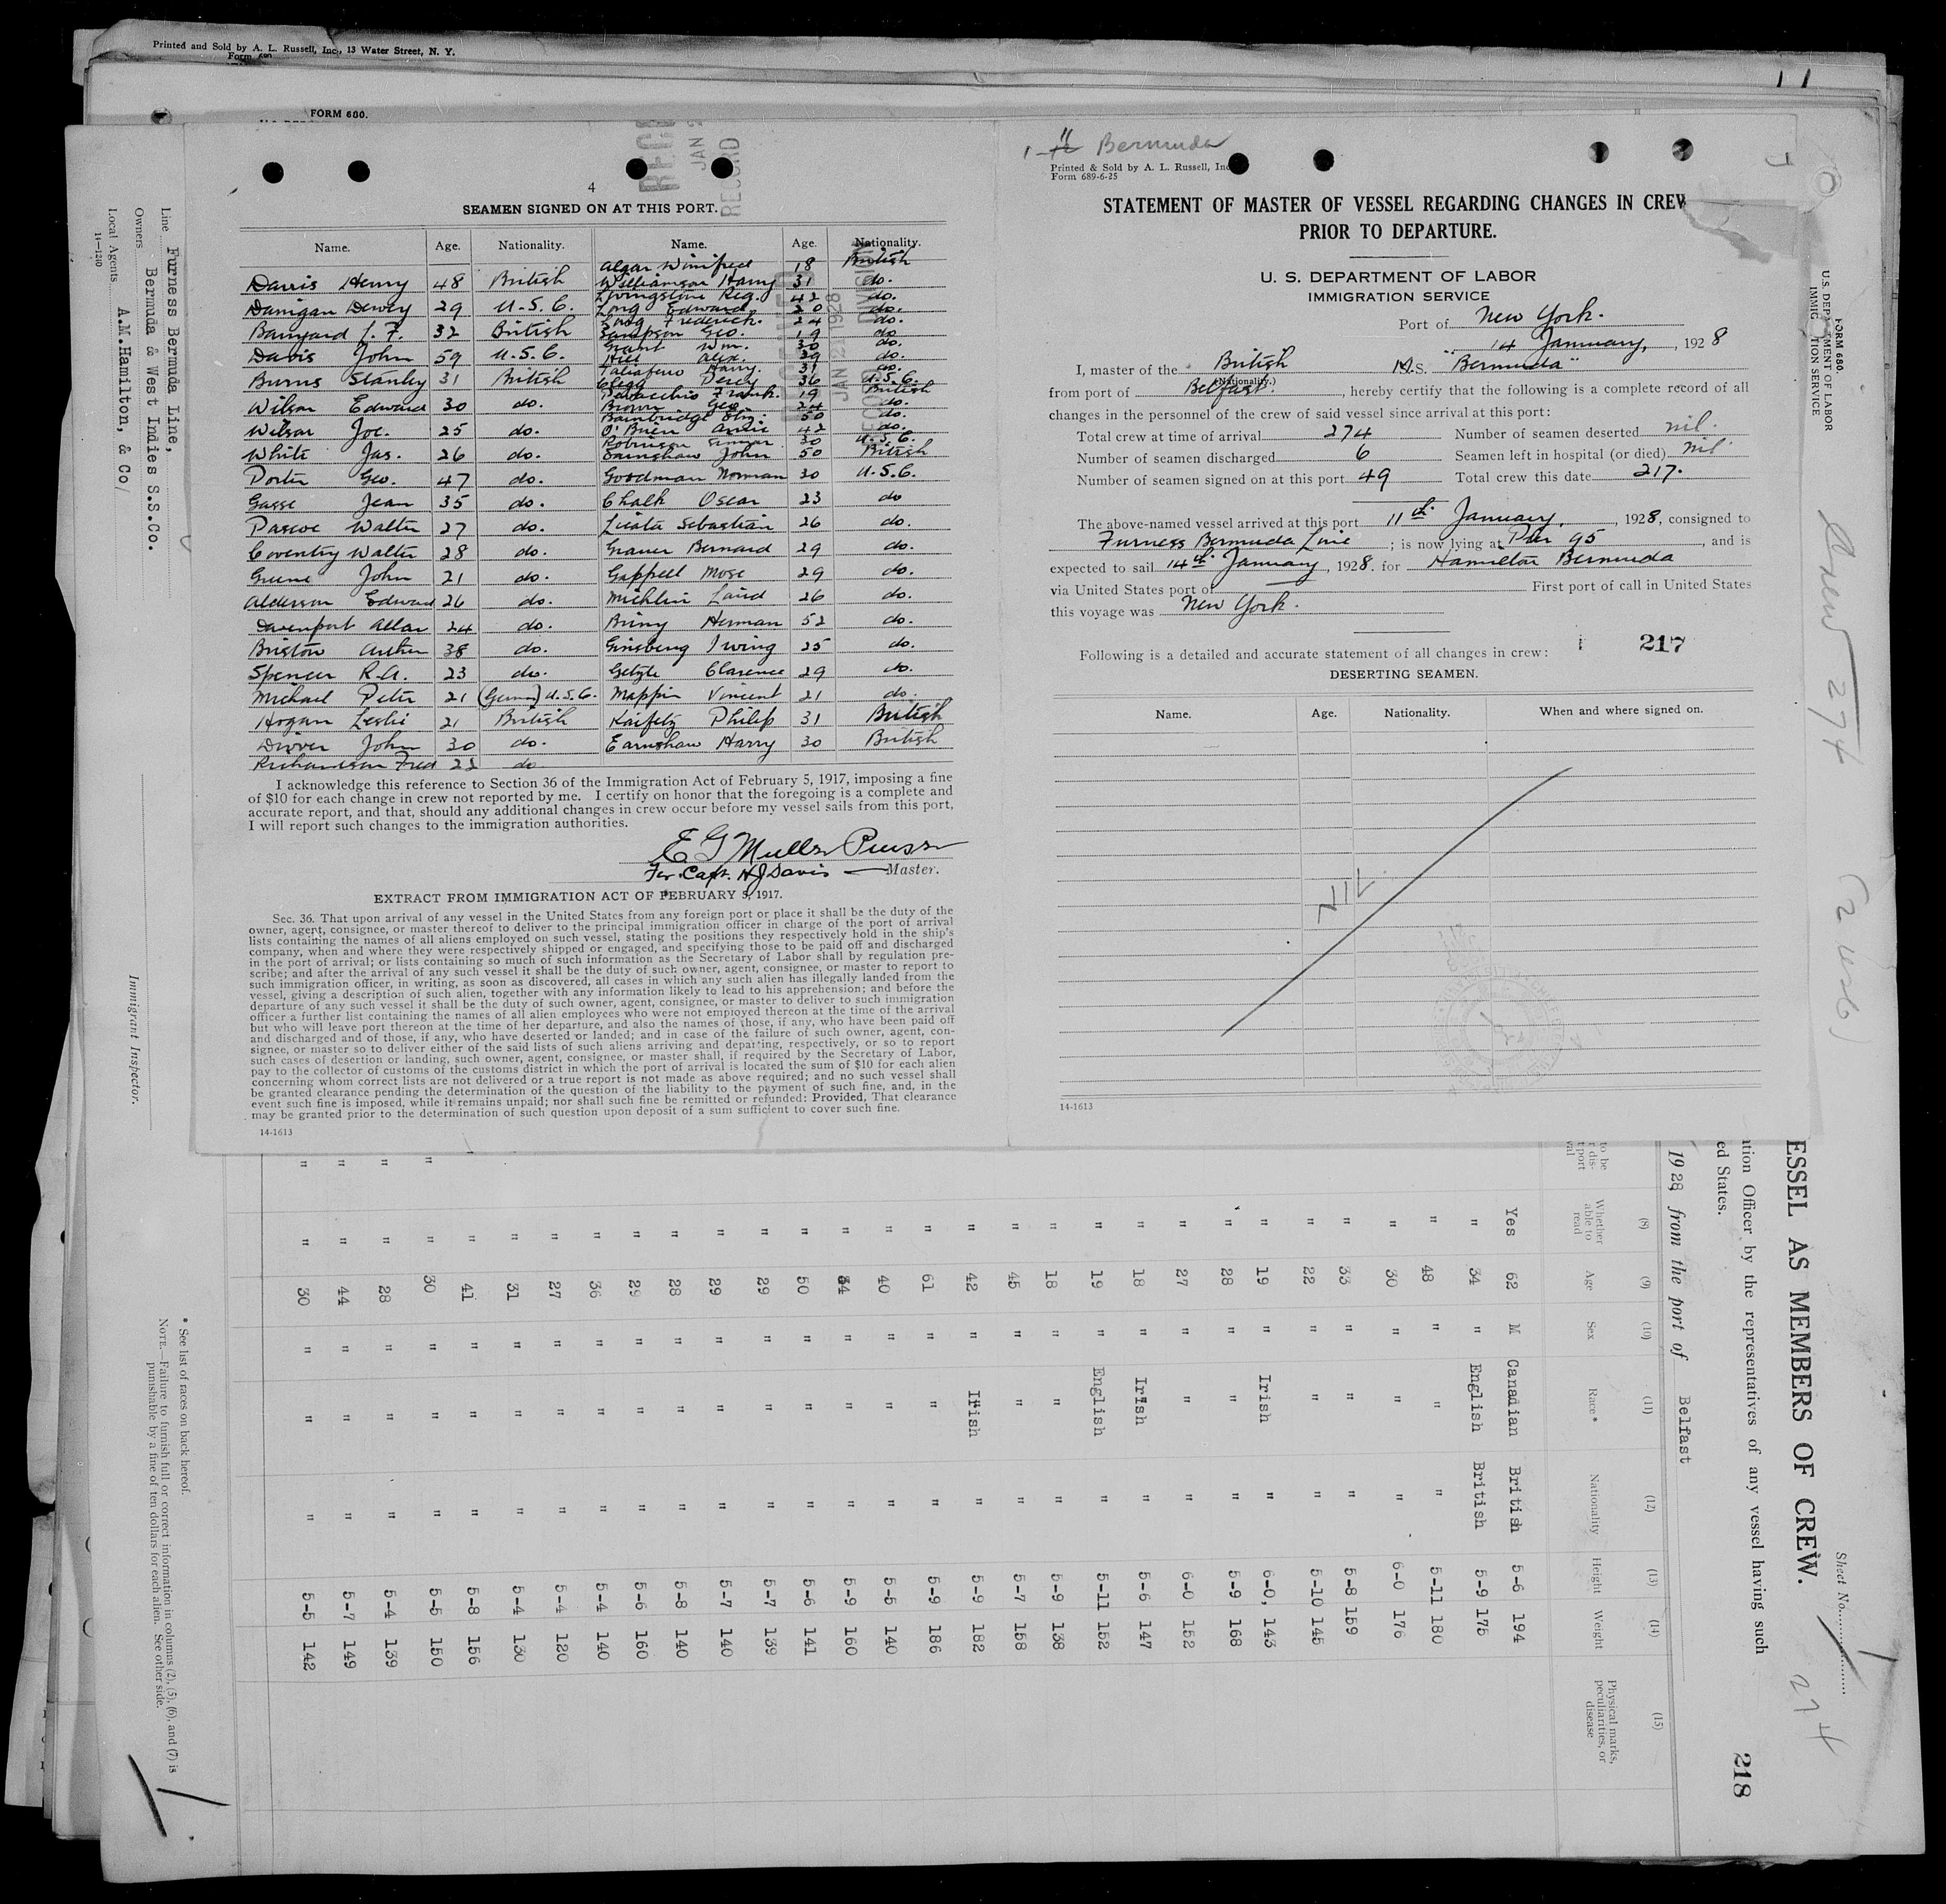 Printed and Sold by A. L. Russell, Inc., 13 Water Street, N. Y.
FORM 680.
4
SEAMEN SIGNED ON AT THIS PORT.
Name. Age. Nationality. Name. Age. Nationality.
Algar Winifred 18 British
Davis Henry 48 British Williamson Harry 31 do.
Livingstone Reg. 42 do.
Danigan Dewey 29 U.S.C. Long Edward 20 do.
Frederick. 24 do.
Banyard J. F. 32 British Sampson Geo. 19 do
Grant Wm. 30 do.
Davis John 59 U.S.C. Hill Alex. 29 do.
Taliafero Harry. 31 do.
Burns Stanley 31 British Clegg Percy 36 U.S.C.
Frank. 19 British
Wilson Edward 30 do. Brown Geo. 24 do.
Bainbridge 50 do.
Wilson Joe. 25 do. O'Brien Annie 42 do.
Robinson 30 U.S.C.
White Jas. 26 do. Earnshaw John 50 British
Porter Geo. 47 do. Goodman Norman 30 U.S.C.
Gasse Jean 35 do. Chalk Oscar 23 do
Pascoe Walter 27 do. Licata Sebastian 26 do.
Coventry Walter 28 do. Graner Bernard 29 do.
Greene John 21 do. Gappell Mose 29 do.
Alderson Edward 26 do. Michlin Laird 26 do.
Davenport Allan 24 do. Briny Herman 52 do.
Briston Arthur 38 do. Ginsberg Irving 25 do.
Spencer R.A. 23 do. Getzle Clarence 29 do.
Michael Peter 21 U.S.C. Mappin Vincent 21 do.
Hogan Leslie 21 British Kaifetz Philip 31 British
Driver John 30 do. Earnshaw Harry 30 British
Richardson Fred 22 do
I acknowledge this reference to Section 36 of the Immigration Act of February 5, 1917, imposing a fine
of $10 for each change in crew not reported by me. I certify on honor that the foregoing is a complete and
accurate report, and that, should any additional changes in crew occur before my vessel sails from this port,
I will report such changes to the immigration authorities.
E G Muller Purser
For Capt. H J Davis Master.
EXTRACT FROM IMMIGRATION ACT OF FEBRUARY 5, 1917.
Sec. 36. That upon arrival of any vessel in the United States from any foreign port or place it shall be the duty of the
owner, agent, consignee, or master thereof to deliver to the principal immigration officer in charge of the port of arrival
lists containing the names of all aliens employed on such vessel, stating the positions they respectively hold in the ship's
company, when and where they were respectively shipped or engaged, and specifying those to be paid off and discharged
in the port of arrival; or lists containing so much of such information as the Secretary of Labor shall by regulation pre-
scribe; and after the arrival of any such vessel it shall be the duty of such owner, agent, consignee, or master to report to
such immigration officer, in writing, as soon as discovered, all cases in which any such alien has illegally landed from the
vessel, giving a description of such alien, together with any information likely to lead to his apprehension; and before the
departure of any such vessel it shall be the duty of such owner, agent, consignee, or master to deliver to such immigration
officer a further list containing the names of all alien employees who were not employed thereon at the time of the arrival
but who will leave port thereon at the time of her departure, and also the names of those, if any, who have been paid off
and discharged and of those, if any, who have deserted or landed; and in case of the failure of such owner, agent, con-
signee, or master so to deliver either of the said lists of such aliens arriving and departing, respectively, or so to report
such cases of desertion or landing, such owner, agent, consignee, or master shall, if required by the Secretary of Labor,
pay to the collector of customs of the customs district in which the port of arrival is located the sum of $10 for each alien
concerning whom correct lists are not delivered or a true report is not made as above required; and no such vessel shall
be granted clearance pending the determination of the question of the liability to the payment of such fine, and, in the
event such fine is imposed, while it remains unpaid; nor shall such fine be remitted or refunded: Provided, That clearance
may be granted prior to the determination of such question upon deposit of a sum sufficient to cover such fine.
14-1613
Bermuda
Printed & Sold by A. L. Russell, Inc
Form 689-6-25
STATEMENT OF MASTER OF VESSEL REGARDING CHANGES IN CREW
PRIOR TO DEPARTURE.
U. S. DEPARTMENT OF LABOR
IMMIGRATION SERVICE
Port of New York.
14 January, , 1928
I, master of the British M.S. "Bermuda"
(Nationality.)
from port of Belfast. , hereby certify that the following is a complete record of all
changes in the personnel of the crew of said vessel since arrival at this port:
Total crew at time of arrival 274 Number of seamen deserted nil.
Number of seamen discharged 6 Seamen left in hospital (or died) nil
Number of seamen signed on at this port 49 Total crew this date 217.
The above-named vessel arrived at this port 11th January, , 1928, consigned to
Furness Bermuda Line ; is now lying at Pier 95 , and is
expected to sail 14th January , 1928. for Hamilton Bermuda
via United States port of First port of call in United States
this voyage was New York.
217
Following is a detailed and accurate statement of all changes in crew:
DESERTING SEAMEN.
Name. Age. Nationality. When and where signed on.
NIL
14-1613
RECEIVED
JAN 21 1928
RECORD DIVISION
Line Furness Bermuda Line,
Owners Bermuda & West Indies S.S.Co.
Local Agents A.M.Hamilton, & Co/
14-1240
Immigrant Inspector.
* See list of races on back hereof.
NOTE.—Failure to furnish full or correct information in columns (2), (5), (6), and (7) is
punishable by a fine of ten dollars for each alien. See other side.
FORM 680.
U. S. DEPARTMENT OF LABOR
IMMIGRATION SERVICE
Crew 274
(2 USC)
Sheet No.
274
ESSEL AS MEMBERS OF CREW.
218
tion Officer by the representatives of any vessel having such
ed States.
1928, from the port of Belfast
(8) (9) (10) (11) (12) (13) (14) (15)
Whether able to read Age Sex Race * Nationality Height Weight Physical marks, peculiarities, or disease
Yes 62 M Canadian British 5-6 194
" 34 " English British 5-9 175
" 48 " " " 5-11 180
" 30 " " " 6-0 176
" 33 " " " 5-8 159
" 22 " " " 5-10 145
" 19 " Irish " 6-0, 143
" 28 " " " 5-9 168
" 27 " " " 6-0 152
" 18 " Irish " 5-6 147
" 19 " English " 5-11 152
" 18 " " " 5-9 138
" 45 " " " 5-7 158
" 42 " Irish " 5-9 182
" 61 " " " 5-9 186
" 40 " " " 5-5 140
" 34 " " " 5-9 160
" 50 " " " 5-6 141
" 29 " " " 5-7 139
" 29 " " " 5-7 140
" 28 " " " 5-8 140
" 29 " " " 5-6 160
" 36 " " " 5-4 140
" 27 " " " 5-4 120
" 31 " " " 5-4 130
" 41 " " " 5-8 156
" 30 " " " 5-5 150
" 28 " " " 5-4 139
" 44 " " " 5-7 149
" 30 " " " 5-5 142